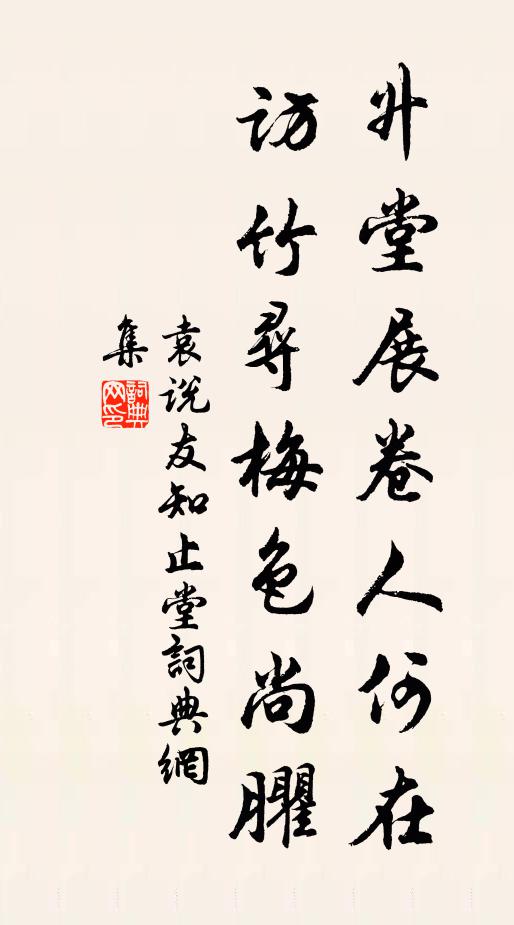 升堂展卷人何在
訪竹尋梅色尚臞
袁说友知止堂詞典網
集
詞典網印